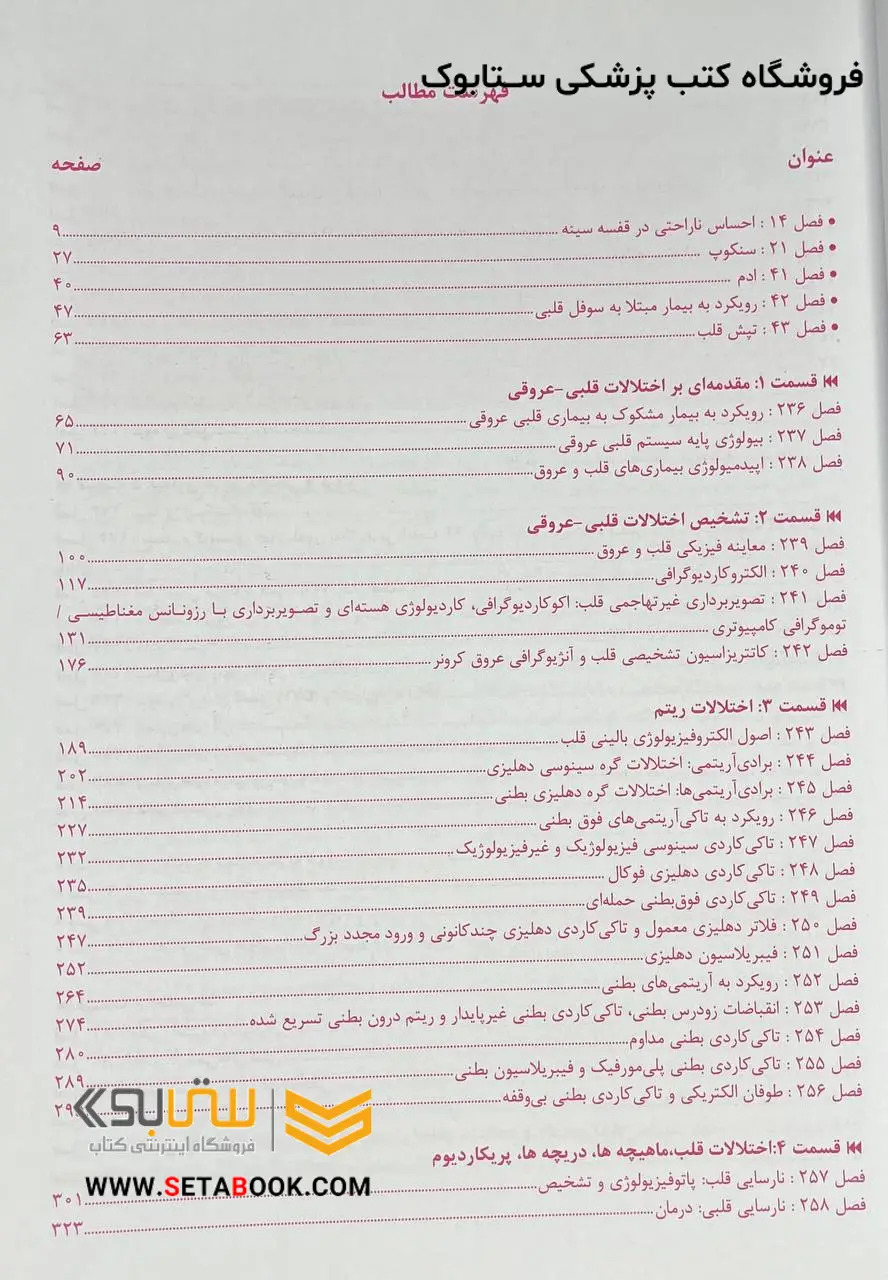 فروشگاه کتب پزشکی ستابوک
فهرست مطالب
عنوان صفحه
• فصل ۱۴ : احساس ناراحتی در قفسه سینه ۹
• فصل ۲۱ : سنکوپ ۲۷
• فصل ۴۱ : ادم ۴۰
• فصل ۴۲ : رویکرد به بیمار مبتلا به سوفل قلبی ۴۷
• فصل ۴۳ : تپش قلب ۶۳
قسمت ۱: مقدمه‌ای بر اختلالات قلبی-عروقی
فصل ۲۳۶ : رویکرد به بیمار مشکوک به بیماری قلبی عروقی ۶۵
فصل ۲۳۷ : بیولوژی پایه سیستم قلبی عروقی ۷۱
فصل ۲۳۸ : اپیدمیولوژی بیماری‌های قلب و عروق ۹۰
قسمت ۲: تشخیص اختلالات قلبی-عروقی
فصل ۲۳۹ : معاینه فیزیکی قلب و عروق ۱۰۰
فصل ۲۴۰ : الکتروکاردیوگرافی ۱۱۷
فصل ۲۴۱ : تصویربرداری غیرتهاجمی قلب: اکوکاردیوگرافی، کاردیولوژی هسته‌ای و تصویربرداری با رزونانس مغناطیسی /
توموگرافی کامپیوتری ۱۳۱
فصل ۲۴۲ : کاتتریزاسیون تشخیصی قلب و آنژیوگرافی عروق کرونر ۱۷۶
قسمت ۳: اختلالات ریتم
فصل ۲۴۳ : اصول الکتروفیزیولوژی بالینی قلب ۱۸۹
فصل ۲۴۴ : برادی‌آریتمی: اختلالات گره سینوسی دهلیزی ۲۰۲
فصل ۲۴۵ : برادی‌آریتمی‌ها: اختلالات گره دهلیزی بطنی ۲۱۴
فصل ۲۴۶ : رویکرد به تاکی‌آریتمی‌های فوق بطنی ۲۲۷
فصل ۲۴۷ : تاکی‌کاردی سینوسی فیزیولوژیک و غیرفیزیولوژیک ۲۳۲
فصل ۲۴۸ : تاکی‌کاردی دهلیزی فوکال ۲۳۵
فصل ۲۴۹ : تاکی‌کاردی فوق‌بطنی حمله‌ای ۲۳۹
فصل ۲۵۰ : فلاتر دهلیزی معمول و تاکی‌کاردی دهلیزی چندکانونی و ورود مجدد بزرگ ۲۴۷
فصل ۲۵۱ : فیبریلاسیون دهلیزی ۲۵۲
فصل ۲۵۲ : رویکرد به آریتمی‌های بطنی ۲۶۴
فصل ۲۵۳ : انقباضات زودرس بطنی، تاکی‌کاردی بطنی غیرپایدار و ریتم درون بطنی تسریع شده ۲۷۴
فصل ۲۵۴ : تاکی‌کاردی بطنی مداوم ۲۸۰
فصل ۲۵۵ : تاکی‌کاردی بطنی پلی‌مورفیک و فیبریلاسیون بطنی ۲۸۹
فصل ۲۵۶ : طوفان الکتریکی و تاکی‌کاردی بطنی بی‌وقفه
ستابوک
فروشگاه اینترنتی کتاب
قسمت ۴:اختلالات قلب،ماهیچه ها، دریچه ها، پریکاردیوم
فصل ۲۵۷ : نارسایی قلب: پاتوفیزیولوژی و تشخیص ۳۰۱
WWW.SETABOOK.COM
فصل ۲۵۸ : نارسایی قلبی: درمان ۳۲۳